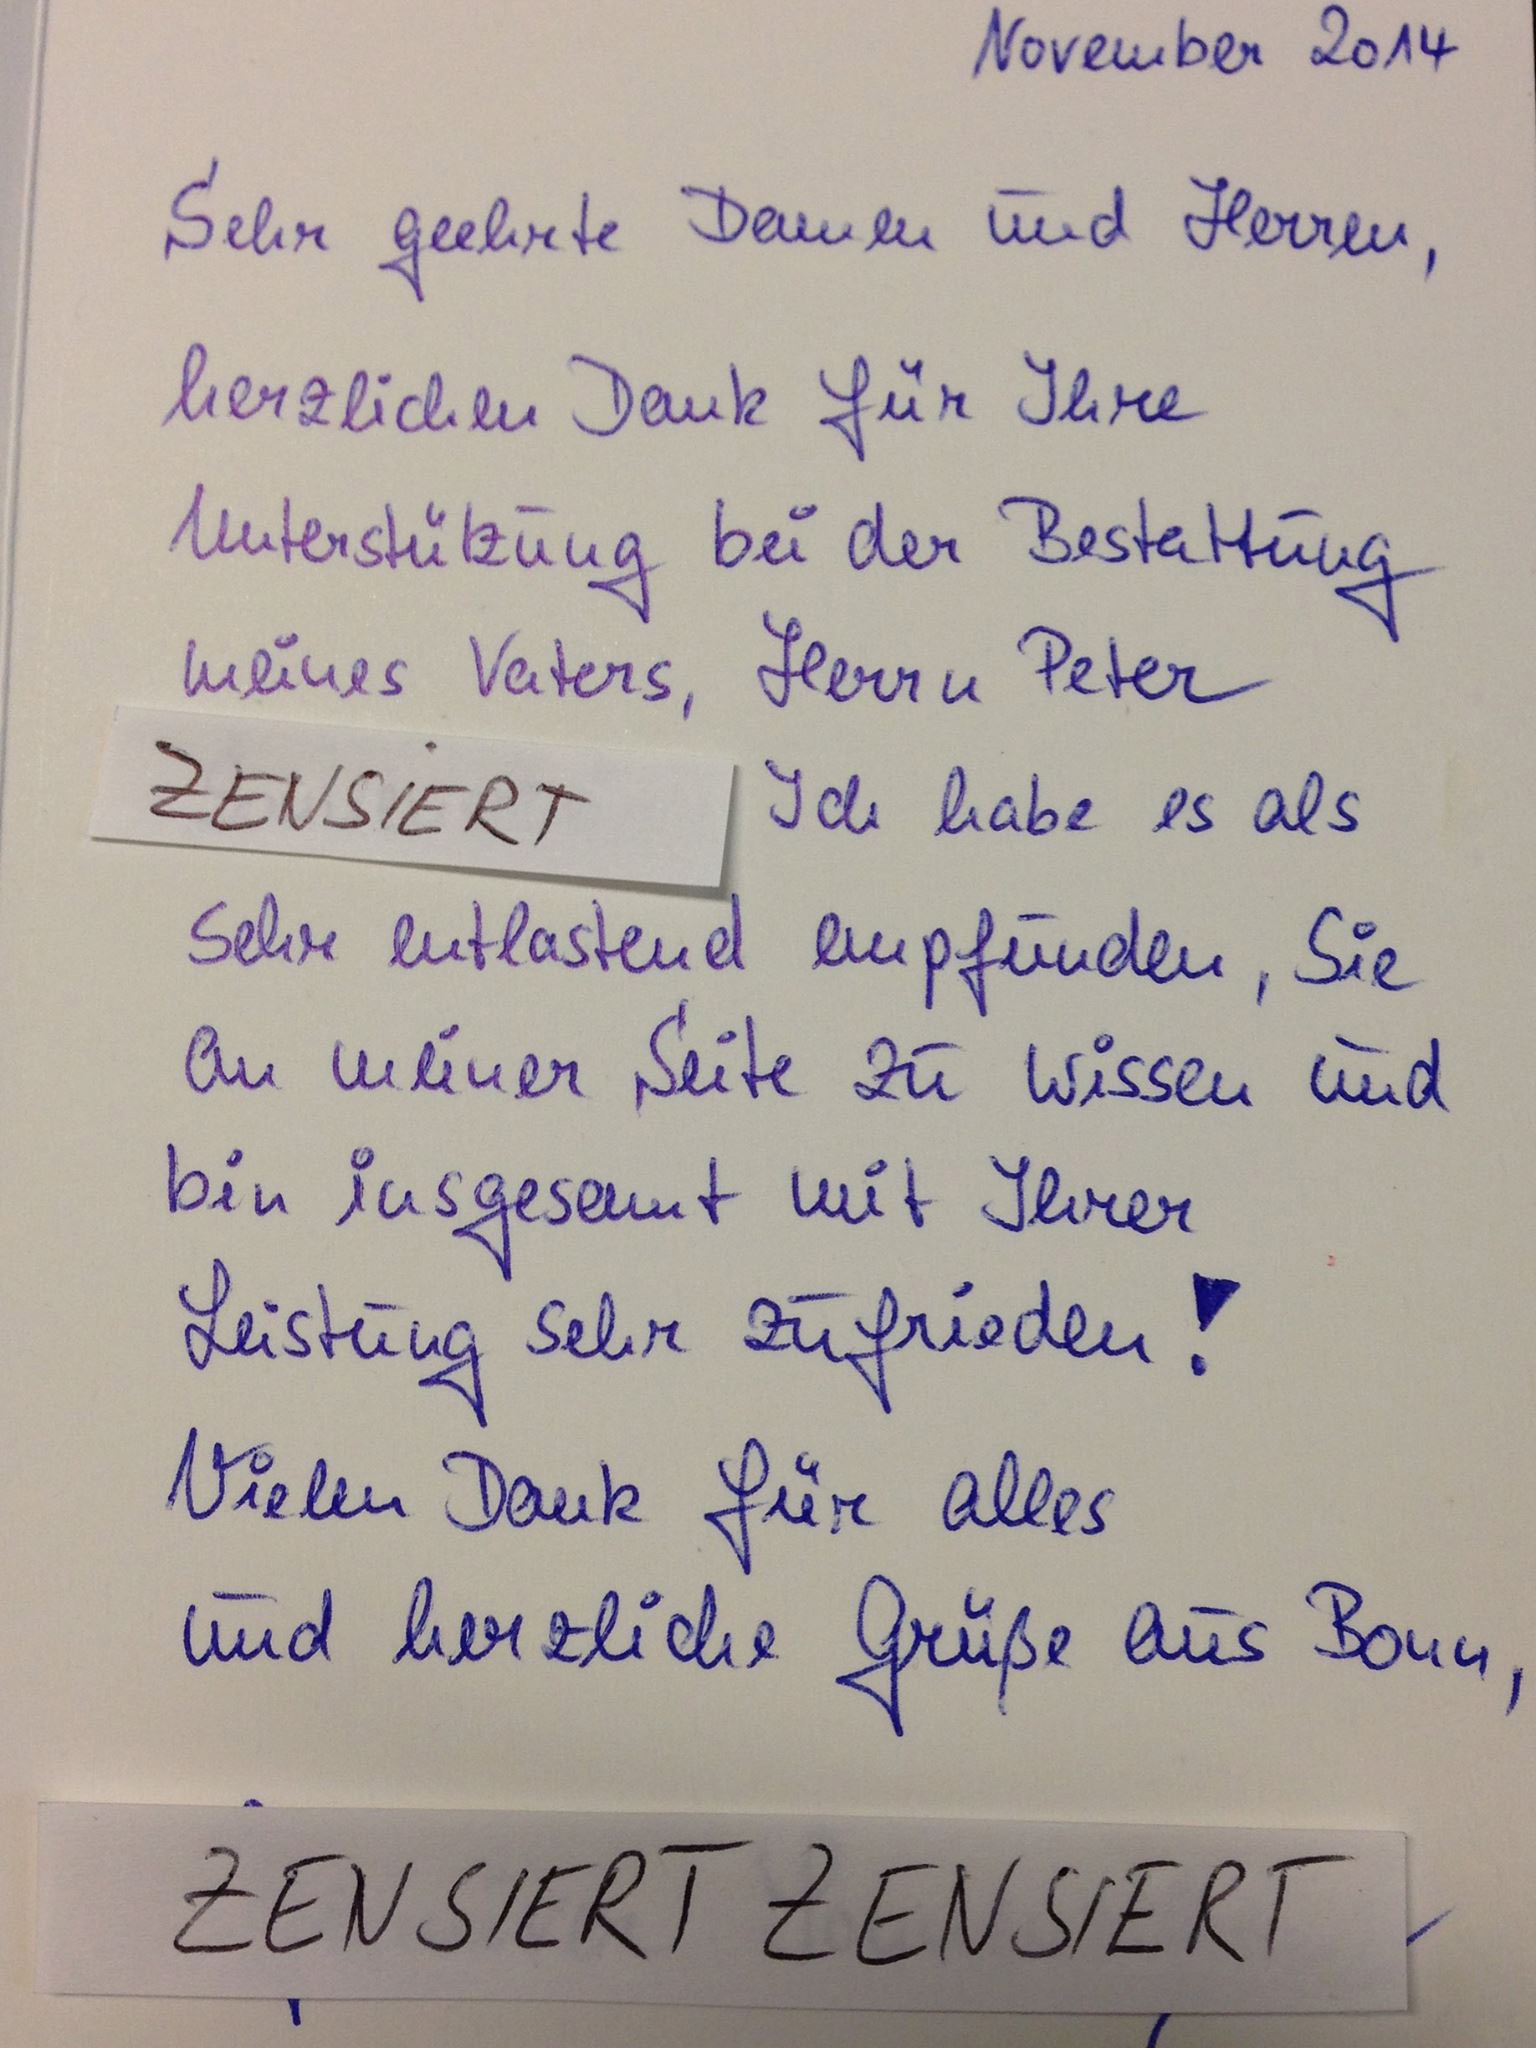 November 2014
Sehr geehrte Damen und Herren,
herzlichen Dank für Ihre
Unterstützung bei der Bestattung
meines Vaters, Herrn Peter
ZENSIERT Ich habe es als
sehr entlastend empfunden, Sie
an meiner Seite zu wissen und
bin insgesamt mit Ihrer
Leistung sehr zufrieden!
Vielen Dank für alles
und herzliche Grüße aus Bonn,
ZENSIERT ZENSIERT